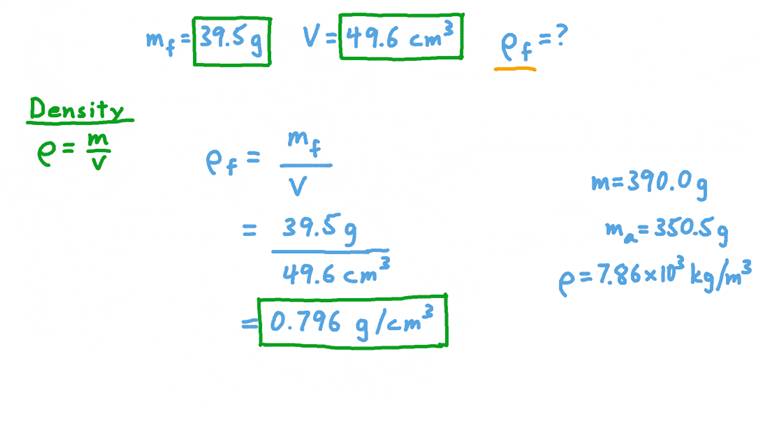 m_f = 39.5 g V = 49.6 cm³ ρ_f = ?
Density
ρ = m/V
ρ_f = m_f/V
= 39.5 g/49.6 cm³
= 0.796 g/cm³
m = 390.0 g
m_a = 350.5 g
ρ = 7.86×10³ kg/m³